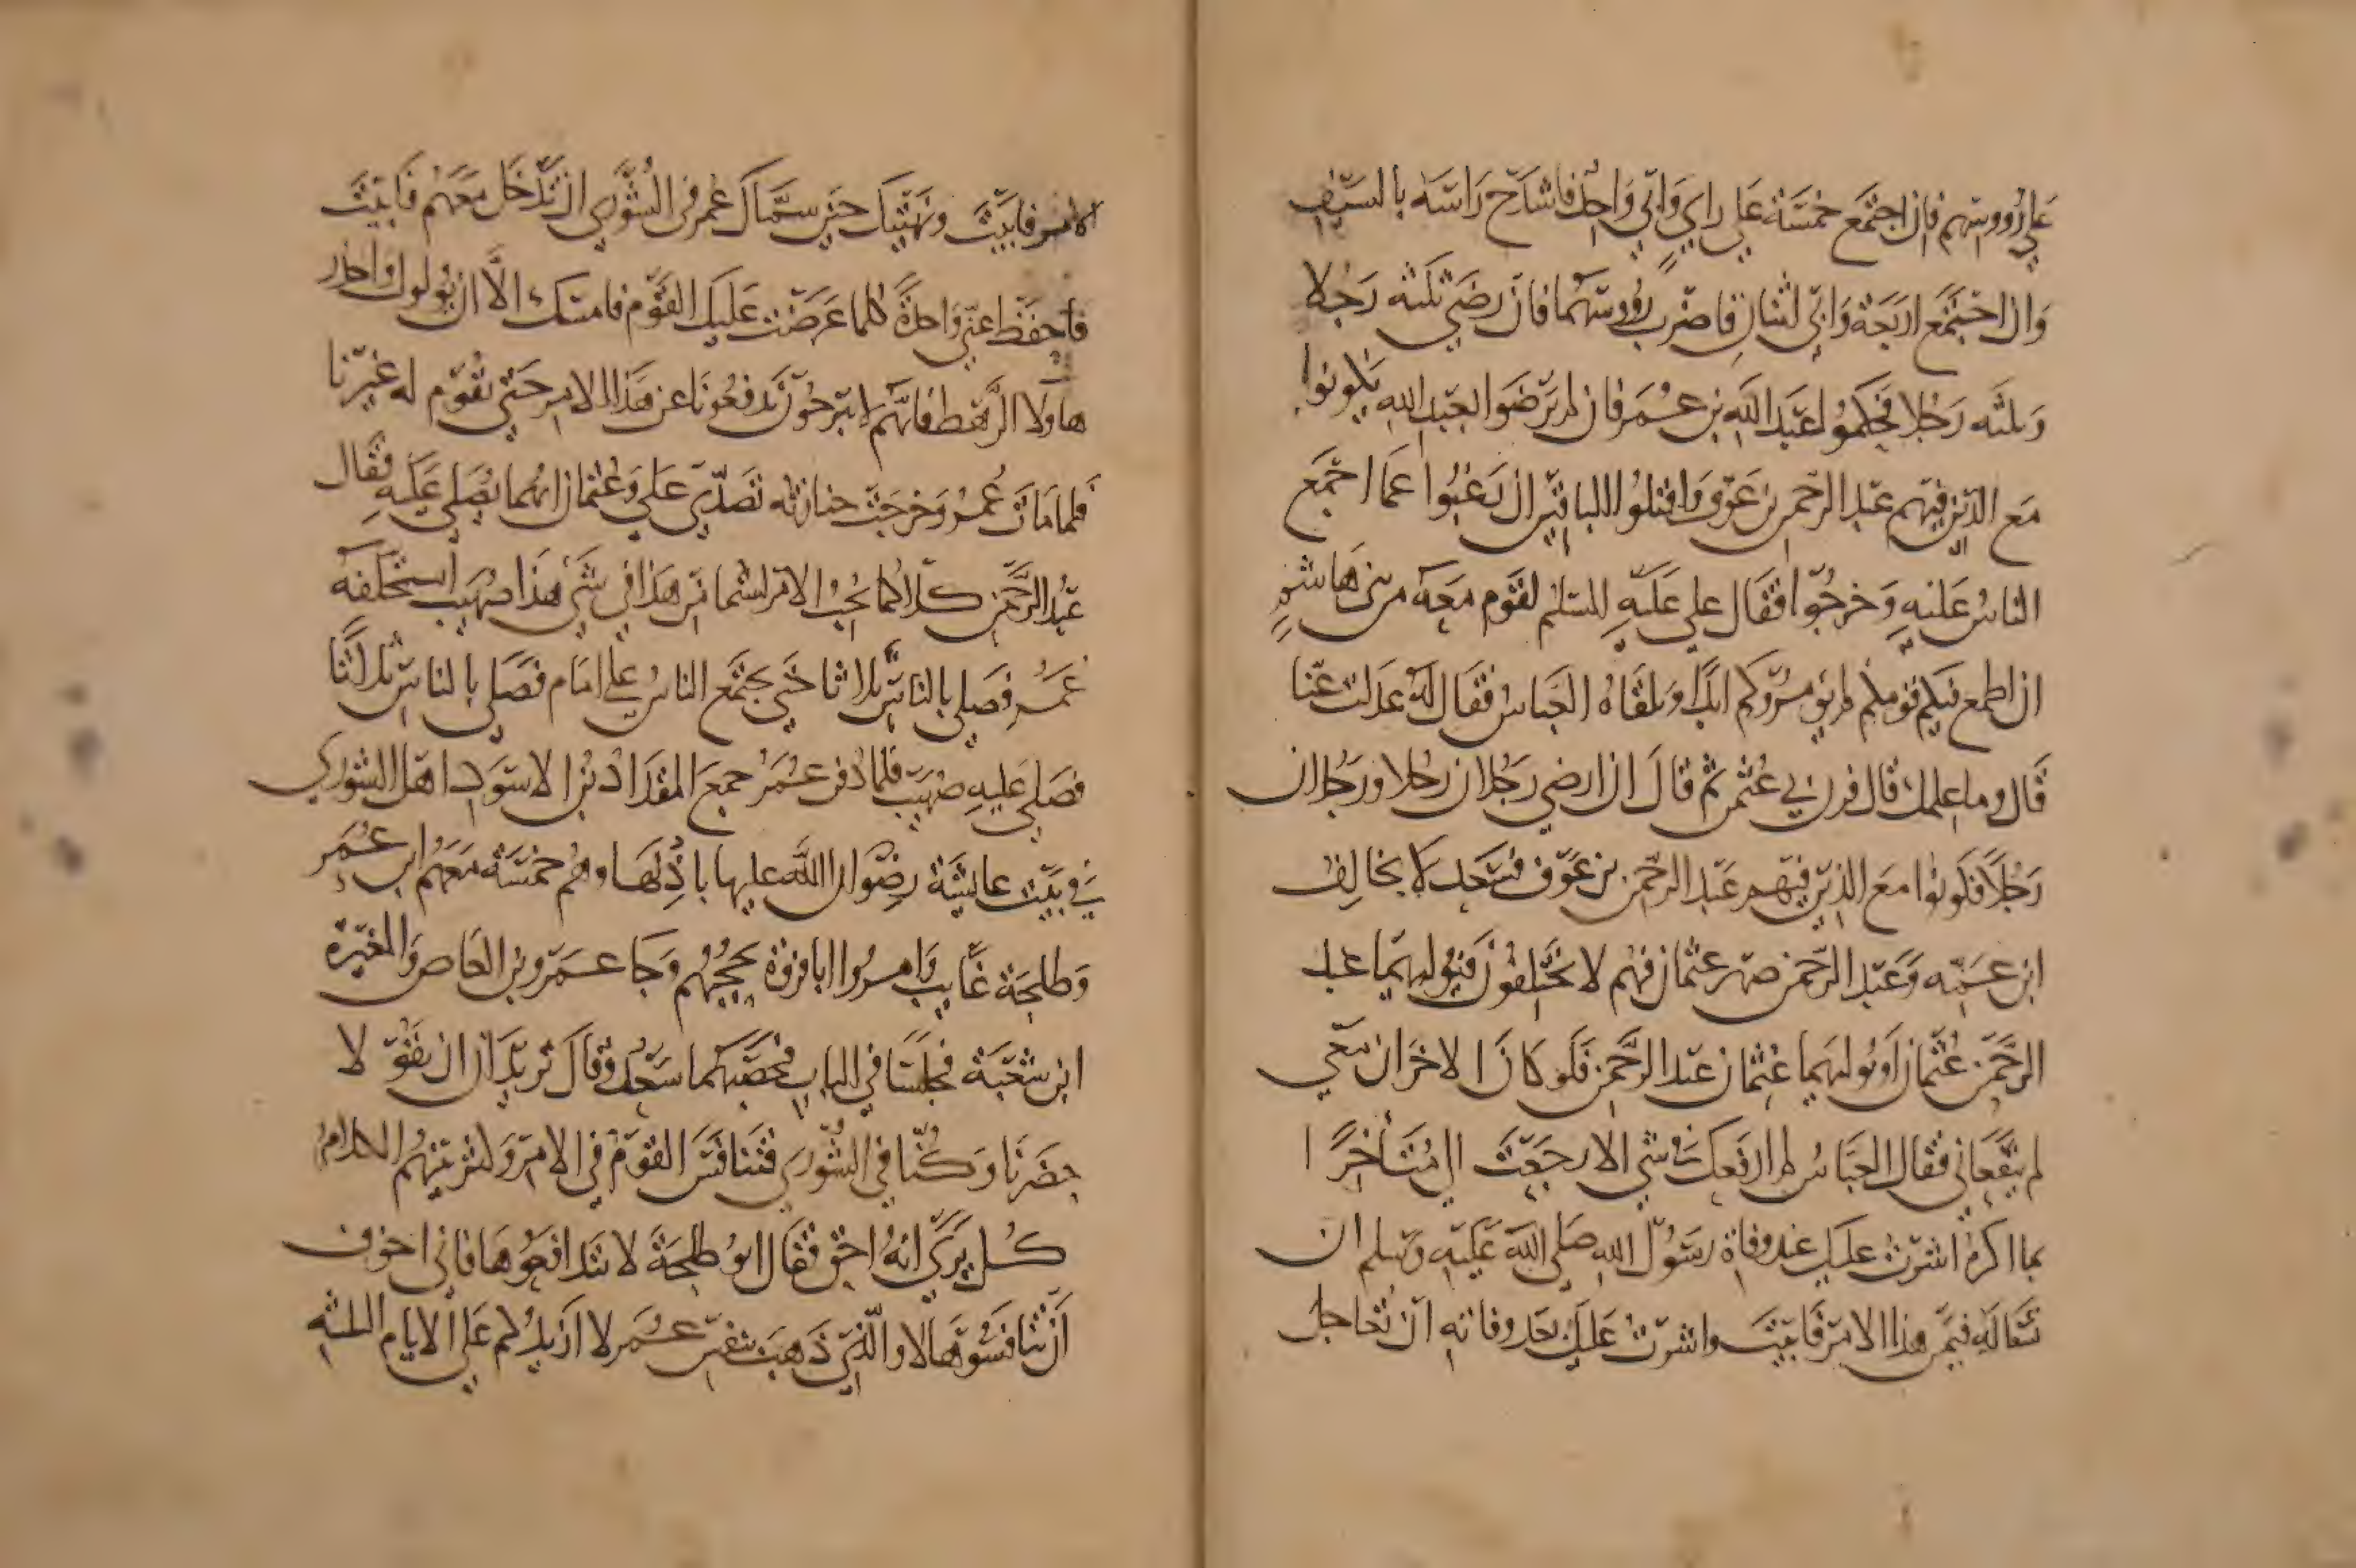 علي رووسهم فان اجتمع خمسة علي راي وابي واحد فاشدخ راسه بالسيف
وان اجتمع اربعة وابي اثنان فاضرب رووسهما فان رضي ثلثه رجلا
وثلثه رجلا فحكموا عبد الله بن عمر فان لم يرضوا بعبد الله فكونوا
مع الذين فيهم عبد الرحمن بن عوف واقتلوا الباقين ان رغبوا عما اجتمع
الناس عليه وخرجوا فقال علي عليه السلم لقوم معه من بني هاشم
ان اطمع فيكم قومكم لم يؤمروكم ابدا وتلقاه العباس فقال له عدلت عنا
قال وما علمك قال قرن بي عثمن ثم قال ان ارضي رجلان رجلا ورجلان
رجلا فكونوا مع الذين فيهم عبد الرحمن بن عوف فسعد لا يخالف
ابن عمه وعبد الرحمن صهر عثمان فهم لا يختلفون فيوليهما عبد
الرحمن عثمان او يوليهما عثمان عبد الرحمن فلو كان الاخران معي
لم ينفعاني فقال العباس لم ارفعك في شي الا رجعت الي متاخرا
بما اكره اشرت عليك عند وفاة رسول الله صلي الله عليه وسلم ان
تساله فيمن هذا الامر فابيت واشرت عليك بعد وفاته ان تعاجل
الامر فابيت ونهيتك حين سماك عمر في الشوري ان تدخل معهم فابيت
فاحفظ عني واحدة كلما عرضت عليك القوم فامسك الا ان يولوك واحذر
هاولا الرهط فانهم لا يبرحون يدفعونا عن هذا الامر حتي تقوم له غيرنا
فلما مات عمر وخرجت جنازته تصدي علي وعثمان ايهما يصلي عليه فقال
عبد الرحمن كلاكما يحب الامر لستما من هذا في شي هذا صهيب استخلفه
عمر فصلي بالناس ثلاثا حتي يجتمع الناس علي امام فصلي بالناس ثلاثا
فصلي عليه صهيب فلما دفن عمر جمع المقداد بن الاسود اهل الشوري
في بيت عايشة رضوان الله عليها باذنها وهم خمسة معهم ابن عمر
وطلحة غايب وامروا ابا طلحة يحجبهم وجا عمرو بن العاص والمغيرة
ابن شعبة فجلسا في الباب فحصبهما سعد وقال تريدان ان تقولا
حضرنا وكنا في الشوري فتنافس القوم في الامر وكثر بينهم الكلام
كل يري انه احق فقال ابو طلحة لا تتدافعوها فاني اخوف
ان تنافسوها لا والذي ذهب بنفس عمر لا ازيدكم علي الايام الثلثه